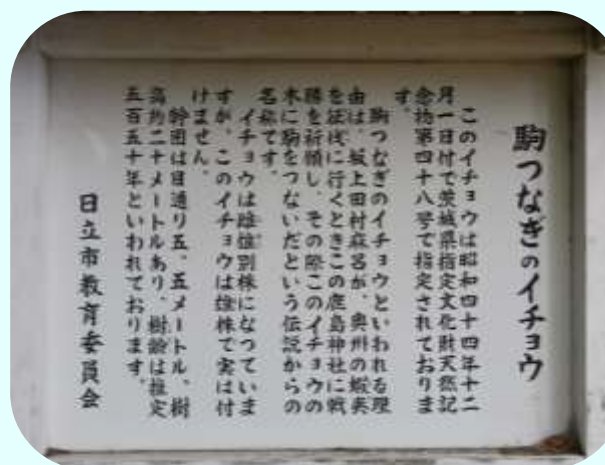 駒つなぎのイチョウ
このイチョウは昭和四十四年十二
月一日付で茨城県指定文化財天然記
念物第四十八号で指定されておりま
す。
駒つなぎのイチョウといわれる理
由は、坂上田村麻呂が、奥州の蝦夷
を征伐に行くときこの鹿島神社に戦
勝を祈願し、その際このイチョウの
木に駒をつないだという伝説からの
名称です。
イチョウは雌雄別株になっていま
すが、このイチョウは雄株で実は付
けません。
幹囲は目通り五、五メートル、樹
高約二十メートルあり、樹齢は推定
五百五十年といわれております。
日立市教育委員会